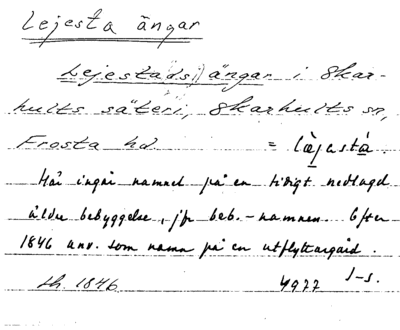 Lejesta ängar
Lejestad(s) ängar i Skar-
hults säteri, Skarhults sn,
Frosta hd = læjastá.
Här ingår namnet på en tidigt nedlagd
äldre bebyggelse, jfr beb.-namnen. Efter
1846 anv. som namn på en utflyttargård.
lh. 1846 4922 J-s.